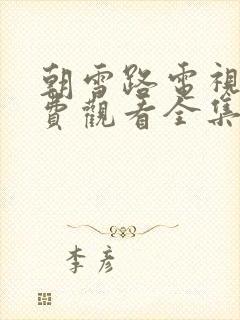 朝雪路電視
費觀看全集
李彦